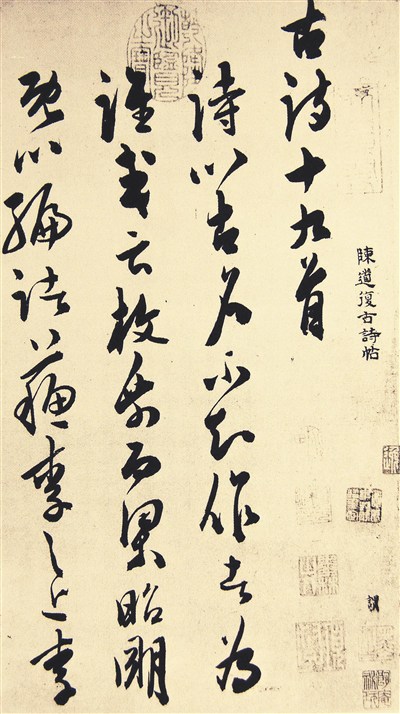 陳道復古詩帖
古詩十九首
詩以古名不知作者為
誰或云枚乘而梁昭明
既以編諸蘇李之上李